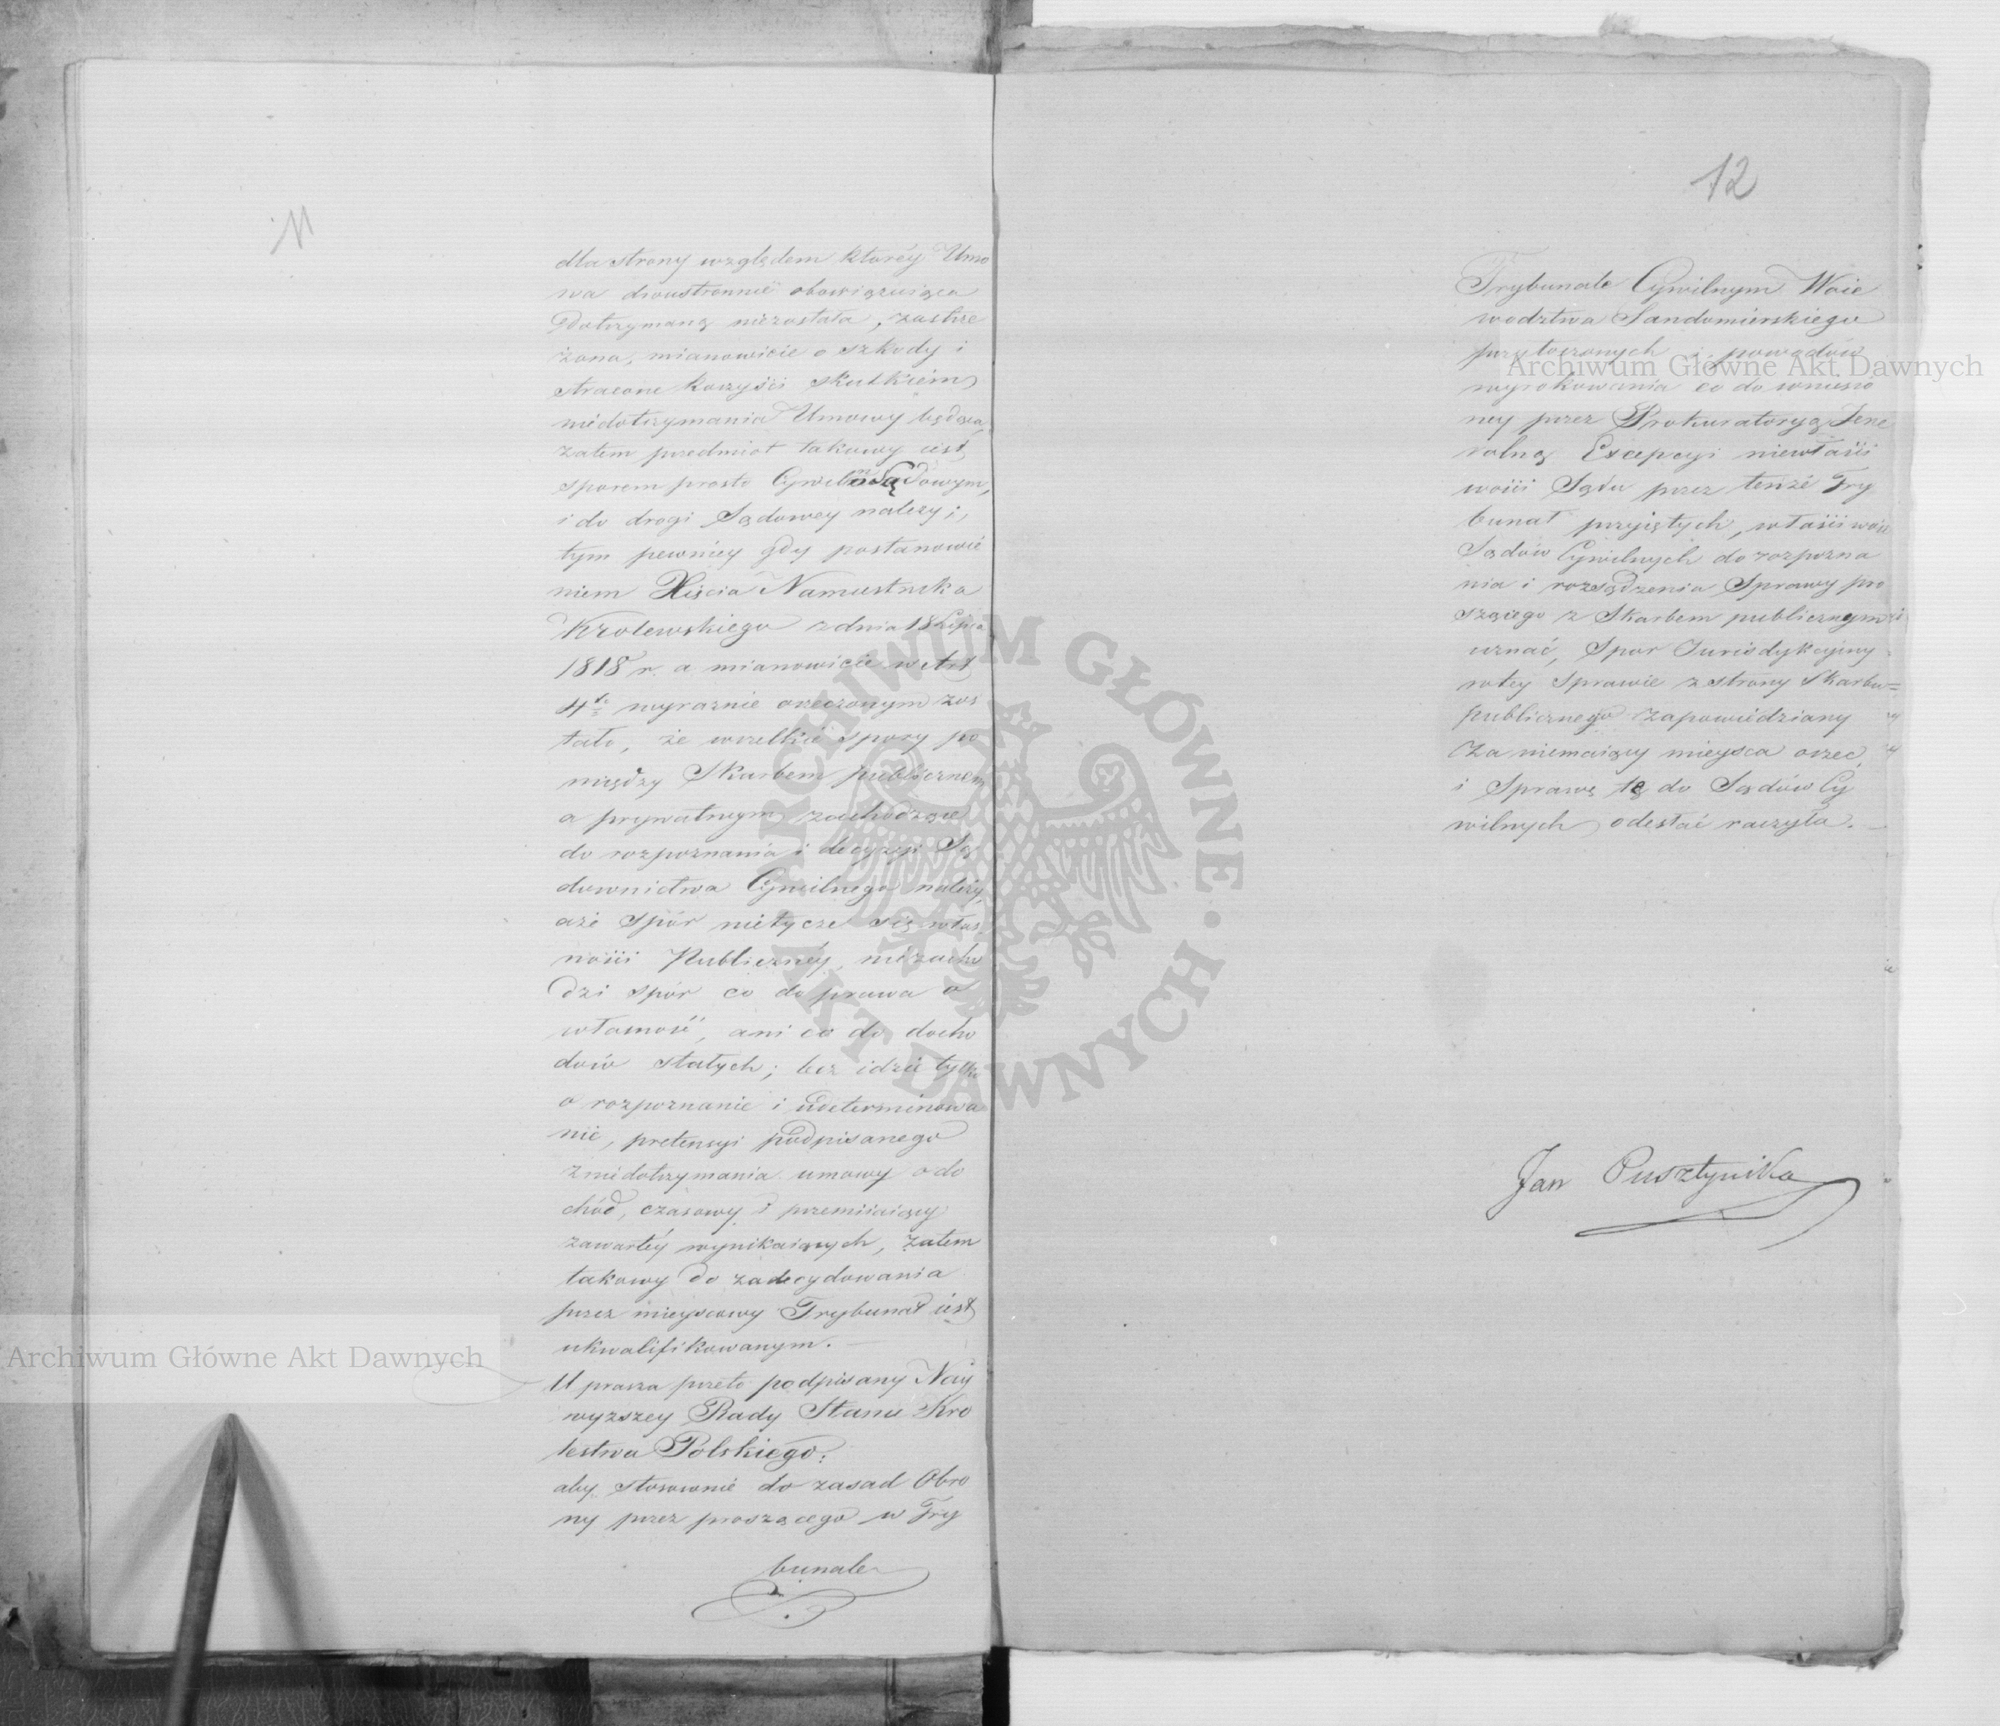 11
dla strony względem któréy Umo
wa dwustronnie obowiązuiąca
dotrzymaną niezostała, zastrze
żona, mianowicie o szkody i
stracone korzyści skutkiem
niedotrzymania Umowy będące,
zatem przedmiot takowy iest
sporem prosto Cywilno Sądowym,
i do drogi Sądowey należy;
tym pewniéy gdy postanowie
niem Xięcia Namiestnika
Krolewskiego z dnia 18 Lipca
1818 r. a mianowicie w Art
4. wyraznie orzeczonym zos
tało, że wszelkie spory po
między Skarbem publicznem
a prywatnym zachodzące
do rozpoznania i decyzyi Są
downictwa Cywilnego należy,
aże Spór nietycze się włas
ności Publicznéy, niezacho
dzi spór co do prawa o
własność, ani co do docho
dów stałych; lecz idzie tylko
o rozpoznanie i udeterminowa
nie, pretensyi podpisanego
z niedotrzymania umowy o do
chód, czasowy i przemiiaiący
zawartéy wynikaiących, zatem
takowy do zadecydowania
przez mieyscowy Trybunał iest
ukwalifikowanym. —
Uprasza przeto podpisany Nay
wyższey Rady Stanu Kro
lestwa Polskiego:
aby stosownie do zasad Obro
ny przez proszącego w Try
bunale
12
Trybunale Cywilnym Woie
wodztwa Sandomierskiego
przytoczonych i powodów
wyrokowania co do wniesio
ney przez Prokuratoryą Jene
ralną Excepcyi niewłaści
wości Sądu przez tenże Try
bunał przyiętych, właściwość
Sądów Cywilnych do rozpozna
nia i rozsądzenia Sprawy pro
szącego z Skarbem publicznym
uznać, Spor Jurisdykcyiny
w tey Sprawie z strony Skarbu
publicznego zapowiedziany
za niemaiący mieysca orzec,
i Sprawę tę do Sądów Cy
wilnych odesłać raczyła. —
Jan Pusztynika
Archiwum Główne Akt Dawnych
Archiwum Główne Akt Dawnych
ARCHIWUM GŁÓWNE · AKT DAWNYCH ·